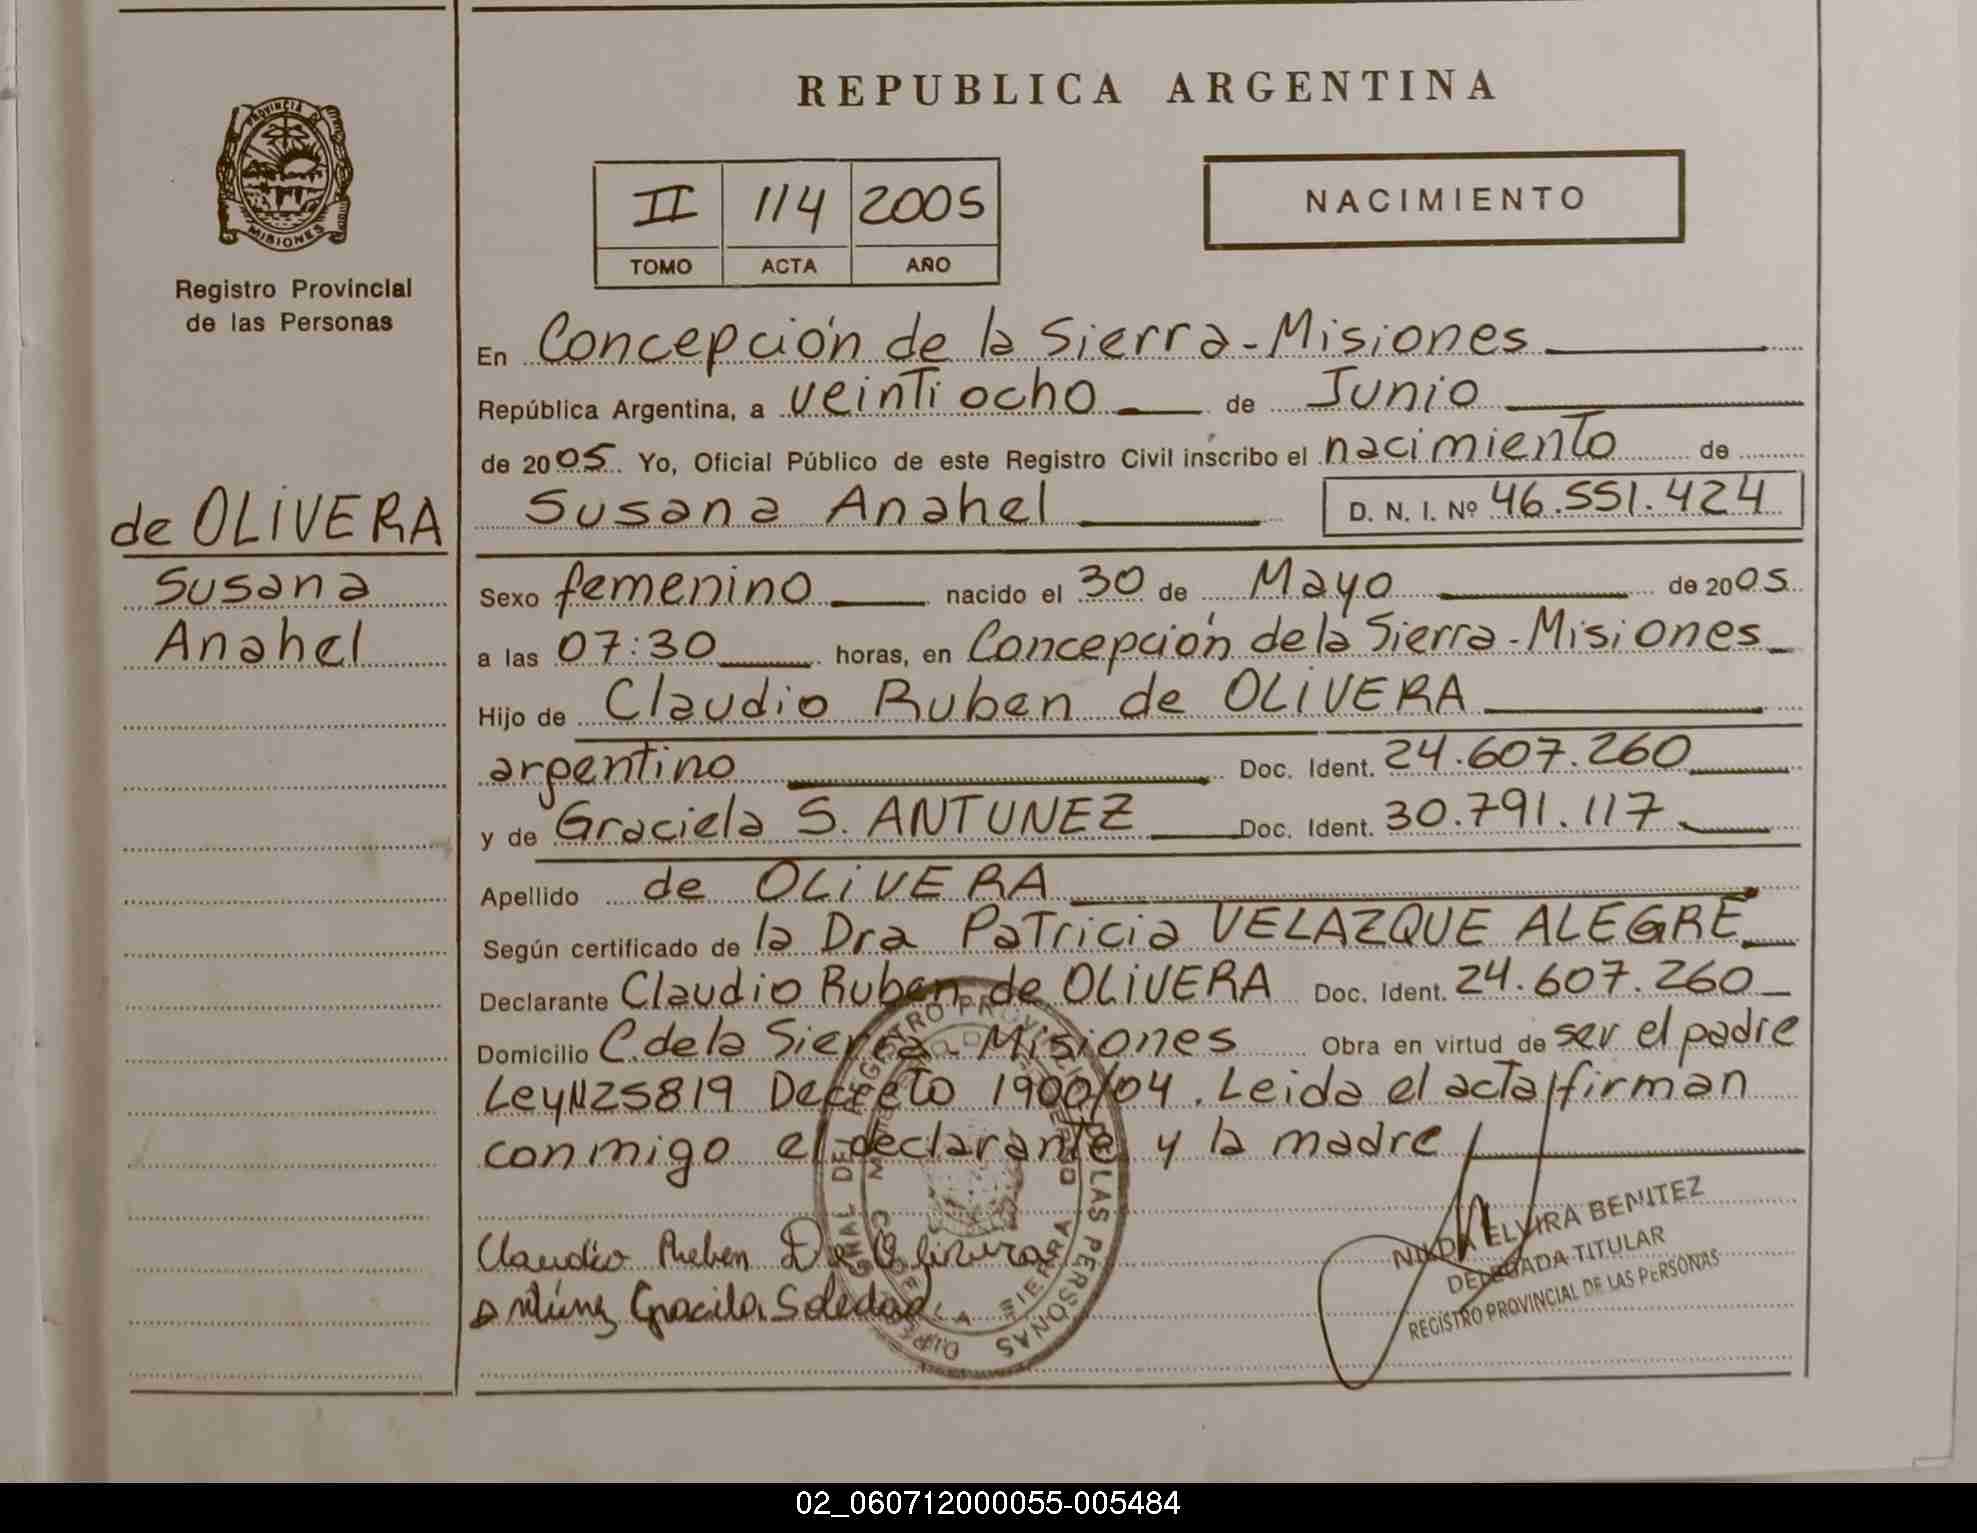 REPUBLICA ARGENTINA
PROVINCIA DE
MISIONES
Registro Provincial
de las Personas
II 114 2005
TOMO ACTA AÑO
NACIMIENTO
de OLIVERA
Susana
Anahel
En Concepción de la Sierra - Misiones
República Argentina, a veintiocho de Junio
de 2005 Yo, Oficial Público de este Registro Civil inscribo el nacimiento de
Susana Anahel D. N. I. Nº 46.551.424
Sexo femenino nacido el 30 de Mayo de 2005
a las 07:30 horas, en Concepción de la Sierra - Misiones
Hijo de Claudio Ruben de OLIVERA
argentino Doc. Ident. 24.607.260
y de Graciela S. ANTUNEZ Doc. Ident. 30.791.117
Apellido de OLIVERA
Según certificado de la Dra Patricia VELAZQUE ALEGRE
Declarante Claudio Ruben de OLIVERA Doc. Ident. 24.607.260
Domicilio C. de la Sierra - Misiones Obra en virtud de ser el padre
Ley N25819 Decreto 1900/04. Leida el acta firman
conmigo el declarante y la madre
Claudio Ruben De Olivera
Antúnez Graciela Soledad
NILDA ELVIRA BENITEZ
DELEGADA TITULAR
REGISTRO PROVINCIAL DE LAS PERSONAS
02_060712000055-005484